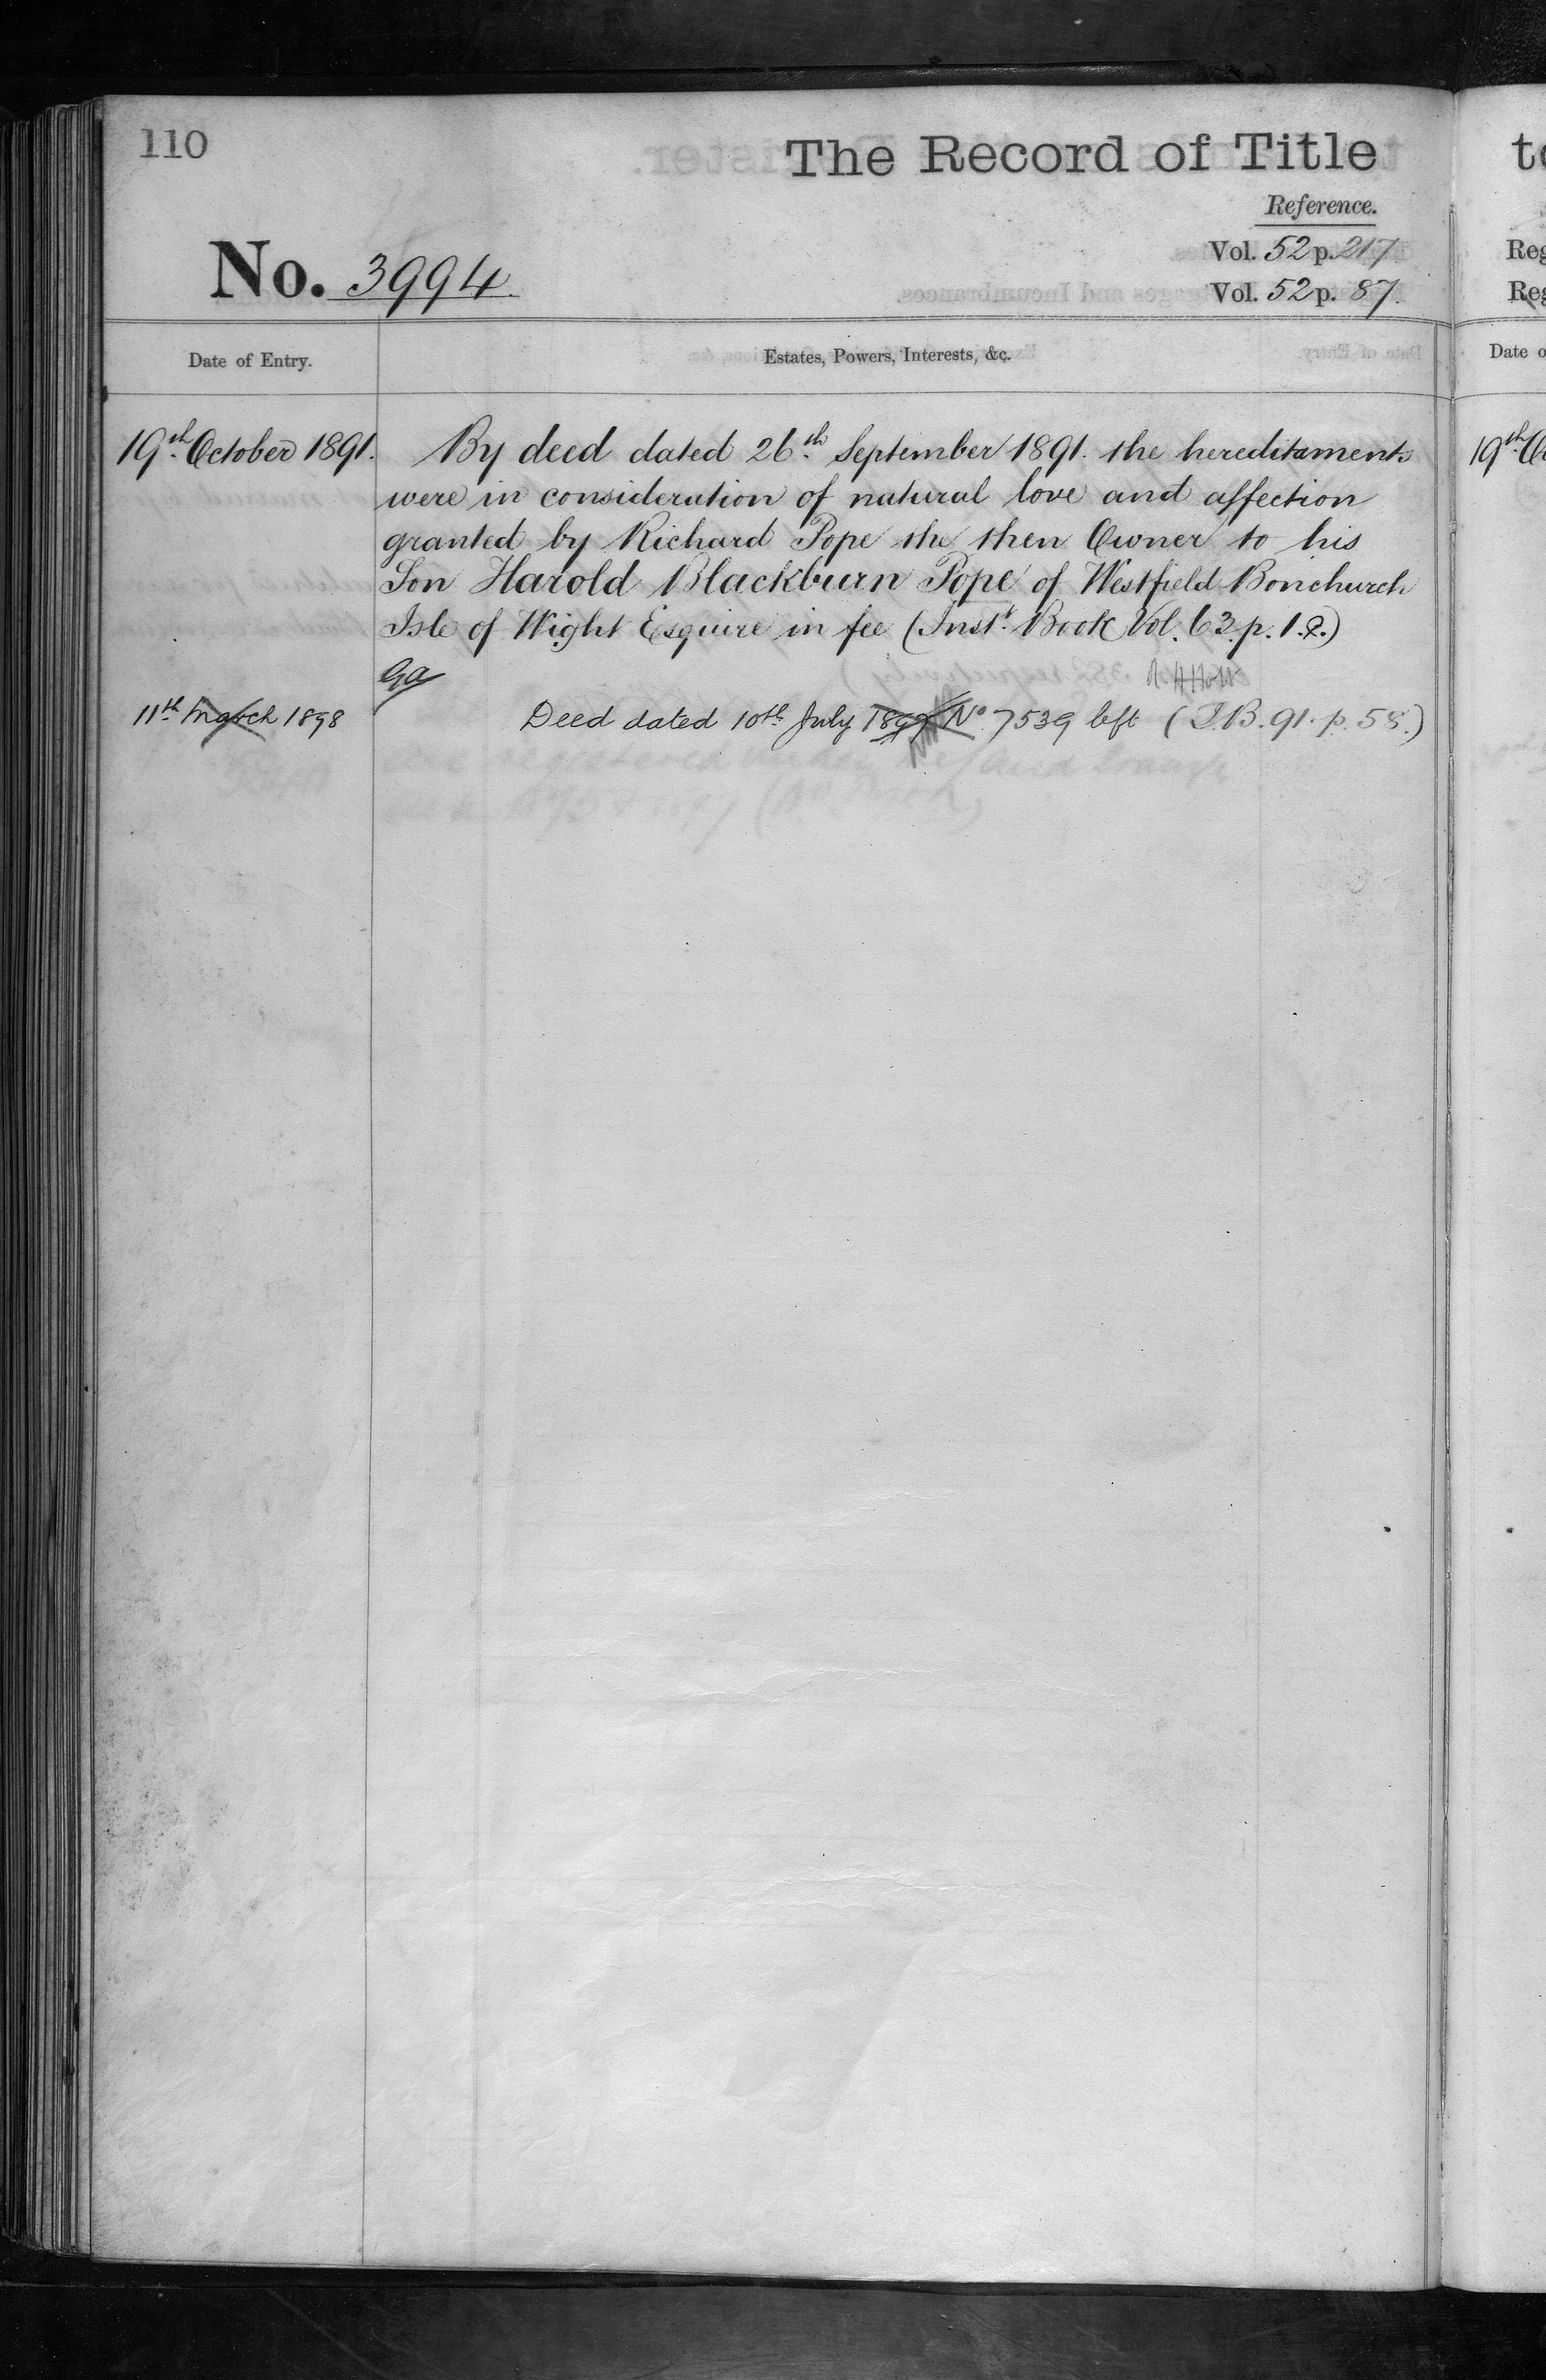 110
The Record of Title
Reference.
No. 3994.
Vol. 52 p. 217
Vol. 52 p. 87.
Date of Entry.
Estates, Powers, Interests, &c.
19th October 1891. By deed dated 26th September 1891. the hereditaments
were in consideration of natural love and affection
granted by Richard Pope the then Owner to his
Son Harold Blackburn Pope of Westfield Bonchurch
Isle of Wight Esquire in fee (Inst. Book Vol. 63. p. 1.2.)
11th March 1898 Deed dated 10th July 1897 No 7539 left (I.B. 91. p. 58.)
Reg
Reg
Date o
19th Oc